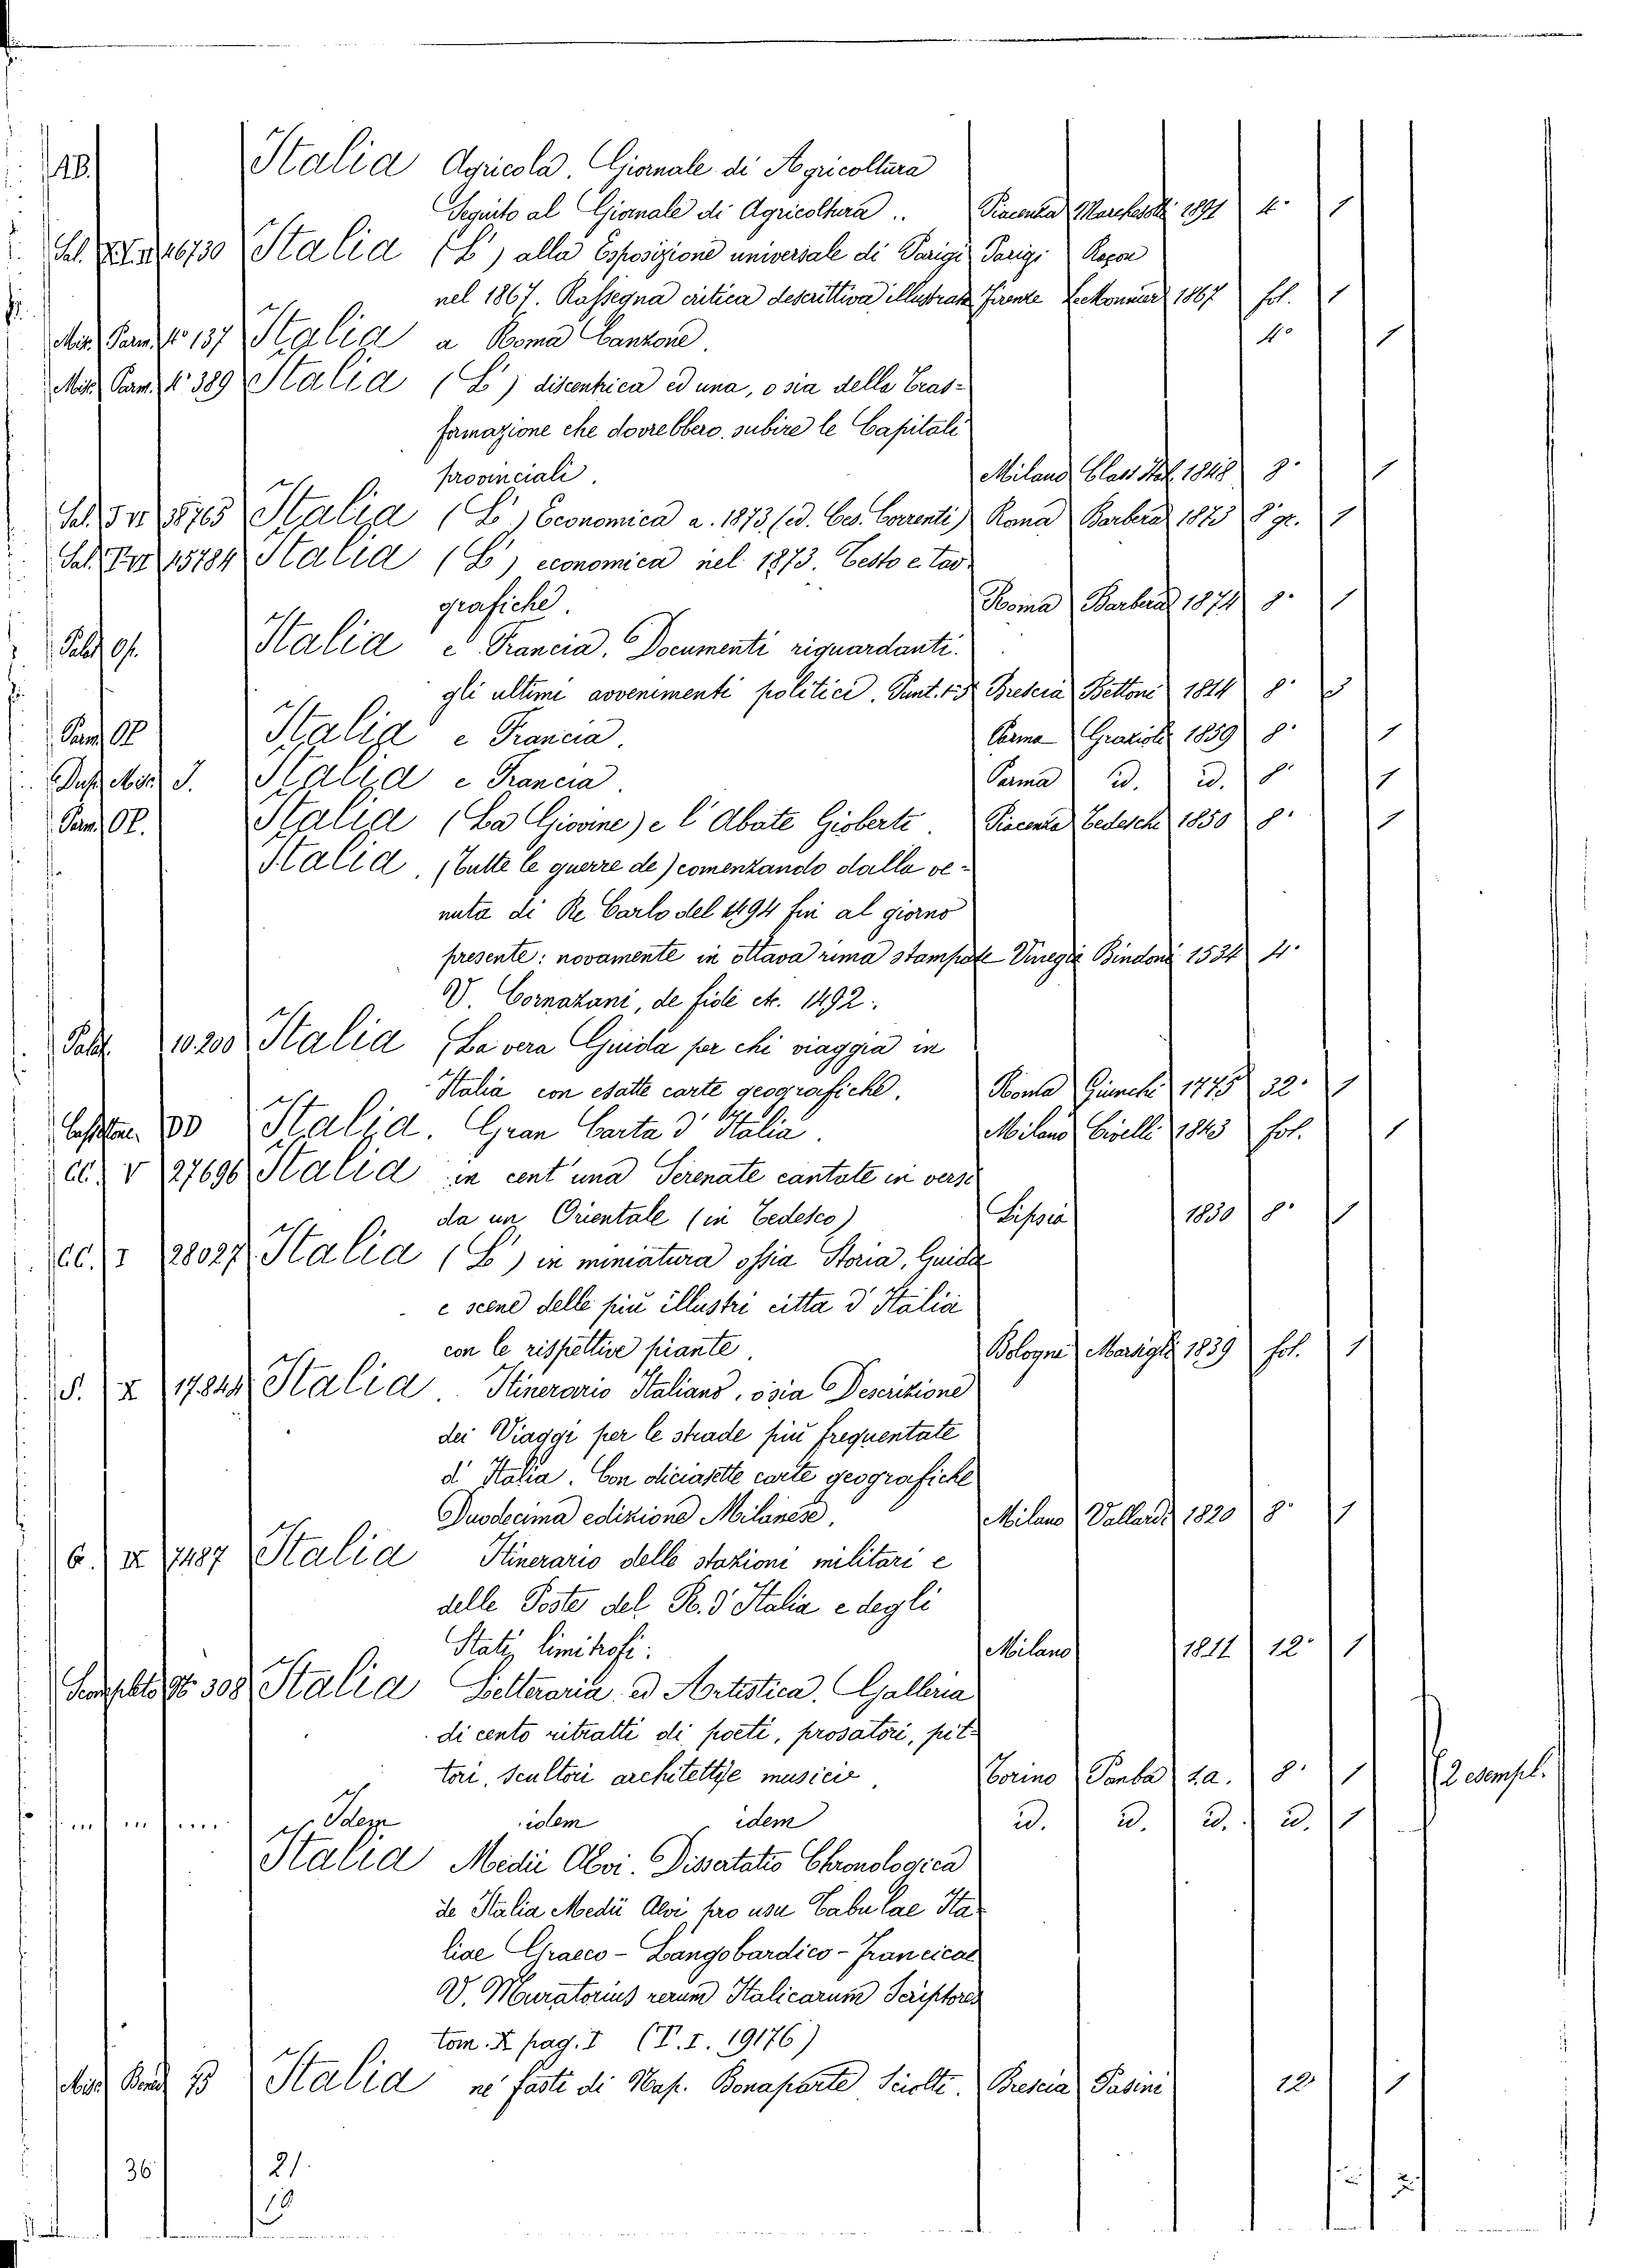 48. Italia Agricola. Giornale di Agricoltura
Seguito al Giornale di Agricoltura.. Piacenza Marchesotti 1891 4° 1
Sal. 16730 Italia (L') alla Esposizione universale di Parigi Parigi Ragon
nel 1867. Rassegna critica descrittiva illustrata Firenze Lemonnier 1867 fol. 1
Misc. Parm. 4° 137 Italia a Roma Canzone. 4° 1
Misc. Parm. 4° 389 Italia (L') discentrica ed una, o sia della Tras-
famazione che dovrebbero subire le Capitali
provinciali. Milano Class. Ital. 1848 8° 1
Sal. 15765 Italia (L') Economica a. 1873 (ed. Ces. Correnti) Roma Barbera 1873 8° gr. 1
Sal. 15784 Italia (L') economica nel 1873. Testo e tav.
grafiche. Roma Barbera 1874 8° 1
Palat. Of. Italia e Francia. Documenti riguardanti
gli ultimi avvenimenti politici. Punt. 1.3 Brescia Bettoni 1814 8° 3
Parm. Italia e Francia. Parma Grazioli 1859 8° 1
Misc. I. Italia e Francia. Parma id. id. 8° 1
Parm. Italia (La Giovine) e l'Abate Gioberti. Piacenza Tedeschi 1850 8° 1
Italia, (Tutte le guerre de) comenzando dalla ve-
nuta di Re Carlo del 1494 fin al giorno
presente: novamente in ottava rima stampate Vinegia Bindoni 1534 4°
V. Cornazani, de fide etc. 1492.
Palat. 10.200 Italia (La vera Guida per chi viaggia in
Italia con esatte carte geografiche. Roma Giunchi 1775 32° 1
Italia. Gran Carta d'Italia. Milano Civelli 1843 fol. 1
CC. V 27696 Italia in cent'una Serenate cantate in versi
da un Orientale (in Tedesco) Lipsia 1830 8° 1
CC. I 28027 Italia (L') in miniatura ossia Storia, Guida
e scene delle più illustri citta d'Italia
con le rispettive piante. Bologna Marsigli 1839 fol. 1
S. X 17844 Italia. Itinerario Italiano, osia Descrizione
dei Viaggi per le strade più frequentate
d'Italia. Con diciasette carte geografiche
Duodecima edizione Milanese. Milano Vallardi 1820 8° 1
G. IX 7487 Italia Itinerario delle stazioni militari e
delle Poste del R. d'Italia e degli
Stati limitrofi. Milano 1811 12° 1
308 Italia Letteraria ed Artistica. Galleria
di cento ritratti di poeti, prosatori, pit-
tori, scultori architetti e musici. Torino Pomba s.a. 8° 1 2 esempl.
Idem idem idem id. id. id. id. 1
Italia Medii Aevi. Dissertatio Chronologica
de Italia Medii Aevi pro usu Tabulae Ita-
liae Graeco-Langobardico-Francicae
V. Muratorius rerum Italicarum Scriptores
tom. X pag. I (T. I. 19176)
Misc. 13 Italia ne' fasti di Nap. Bonaparte Sciolti. Brescia Pasini 12° 1
36 21
10
2